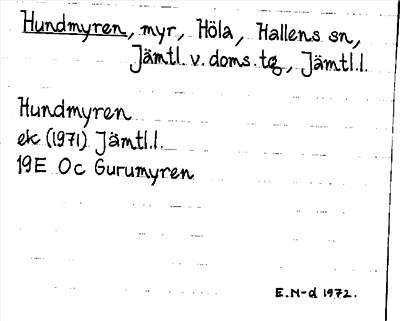 Hundmyren, myr, Höla, Hallens sn,
Jämtl. v. doms. tg, Jämtl.l.
Hundmyren
ek (1971) Jämtl.l.
19E Oc Gurumyren
E.N-d 1972.